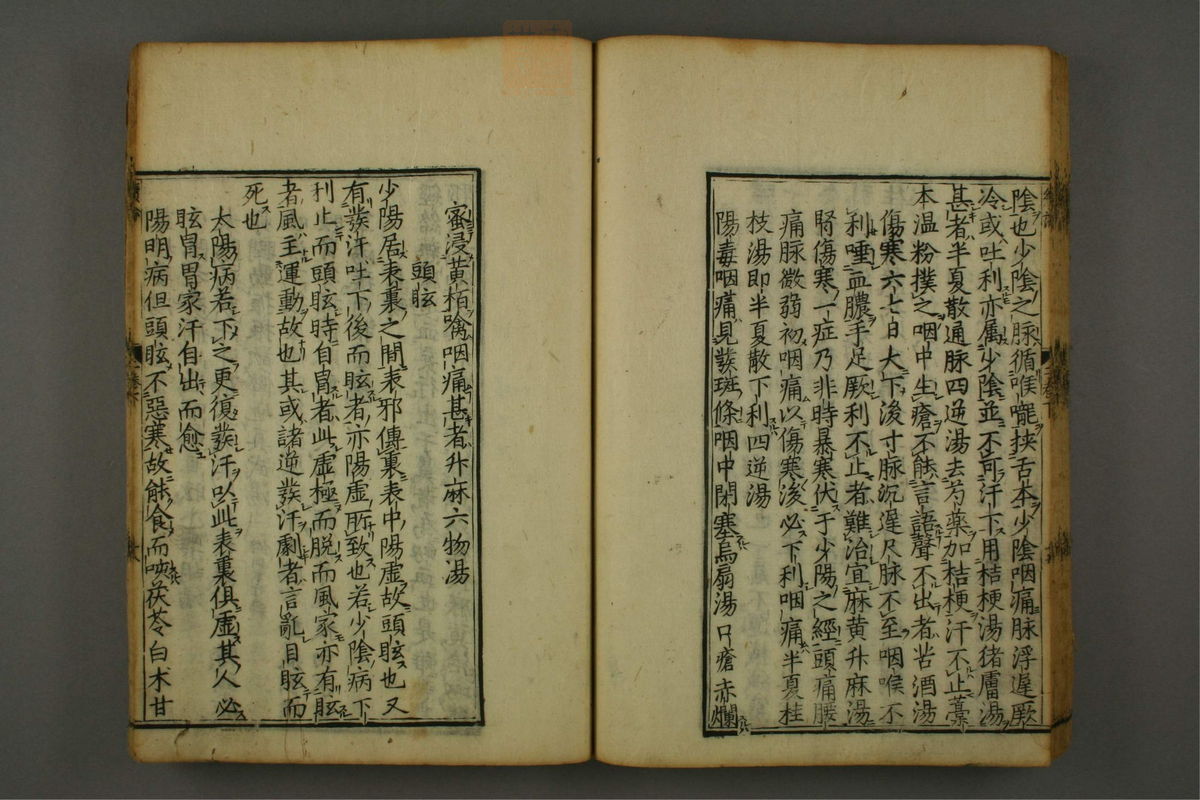 陰也少陰之脉循喉嚨挾舌本少陰咽痛脉浮遲厥
冷或吐利亦属少陰並不可汗下用桔梗湯猪膚湯
甚者半夏散通脉四逆湯去芍藥加桔梗汗不止藁
本温粉撲之咽中生瘡不能言語聲不出者苦酒湯
傷寒六七日大下後寸脉沉遲尺脉不至咽喉不
利唾血膿手足厥利不止者難治宜麻黄升麻湯
腎傷寒一症乃非時暴寒伏于少陽之經頭痛腰
痛脉微弱初咽痛以傷寒後必下利咽痛半夏桂
枝湯即半夏散下利四逆湯
陽毒咽痛見發斑條咽中閉塞烏扇湯口瘡赤爛
蜜浸黄栢噙咽痛甚者升麻六物湯
頭眩
少陽居表裏之間表邪傳裏表中陽虚故頭眩也又
有發汗吐下後而眩者亦陽虚所致也若少陰病下
利止而頭眩時自冒者此虚極而脱而風家亦有眩
者風主運動故也其或諸逆發汗劇者言亂目眩而
死也
太陽病若下之更復發汗以此表裏俱虚其人必
眩冐冐家汗自出而愈
陽明病但頭眩不惡寒故能食而咳茯苓白木甘